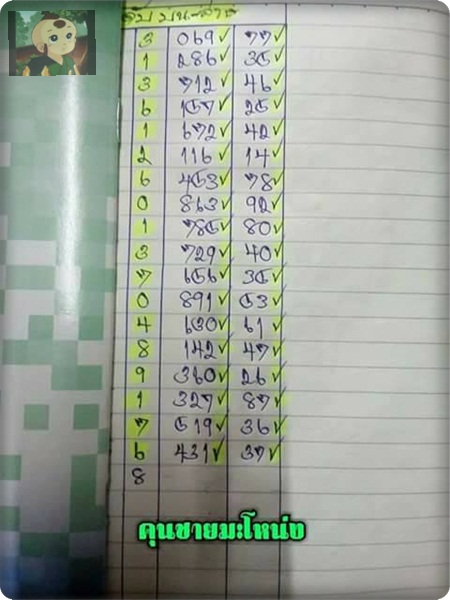 จับ บน-ล่าง
3 069✓ 77✓
1 286✓ 35✓
3 712✓ 46✓
6 157✓ 25✓
1 672✓ 42✓
2 116✓ 14✓
6 453✓ 78✓
0 863✓ 92✓
1 785✓ 80✓
3 729✓ 40✓
7 656✓ 35✓
0 891✓ 53✓
4 630✓ 61✓
8 142✓ 47✓
9 360✓ 26✓
1 327✓ 87✓
7 519✓ 36✓
6 431✓ 37✓
8
คุนชายมะโหน่ง